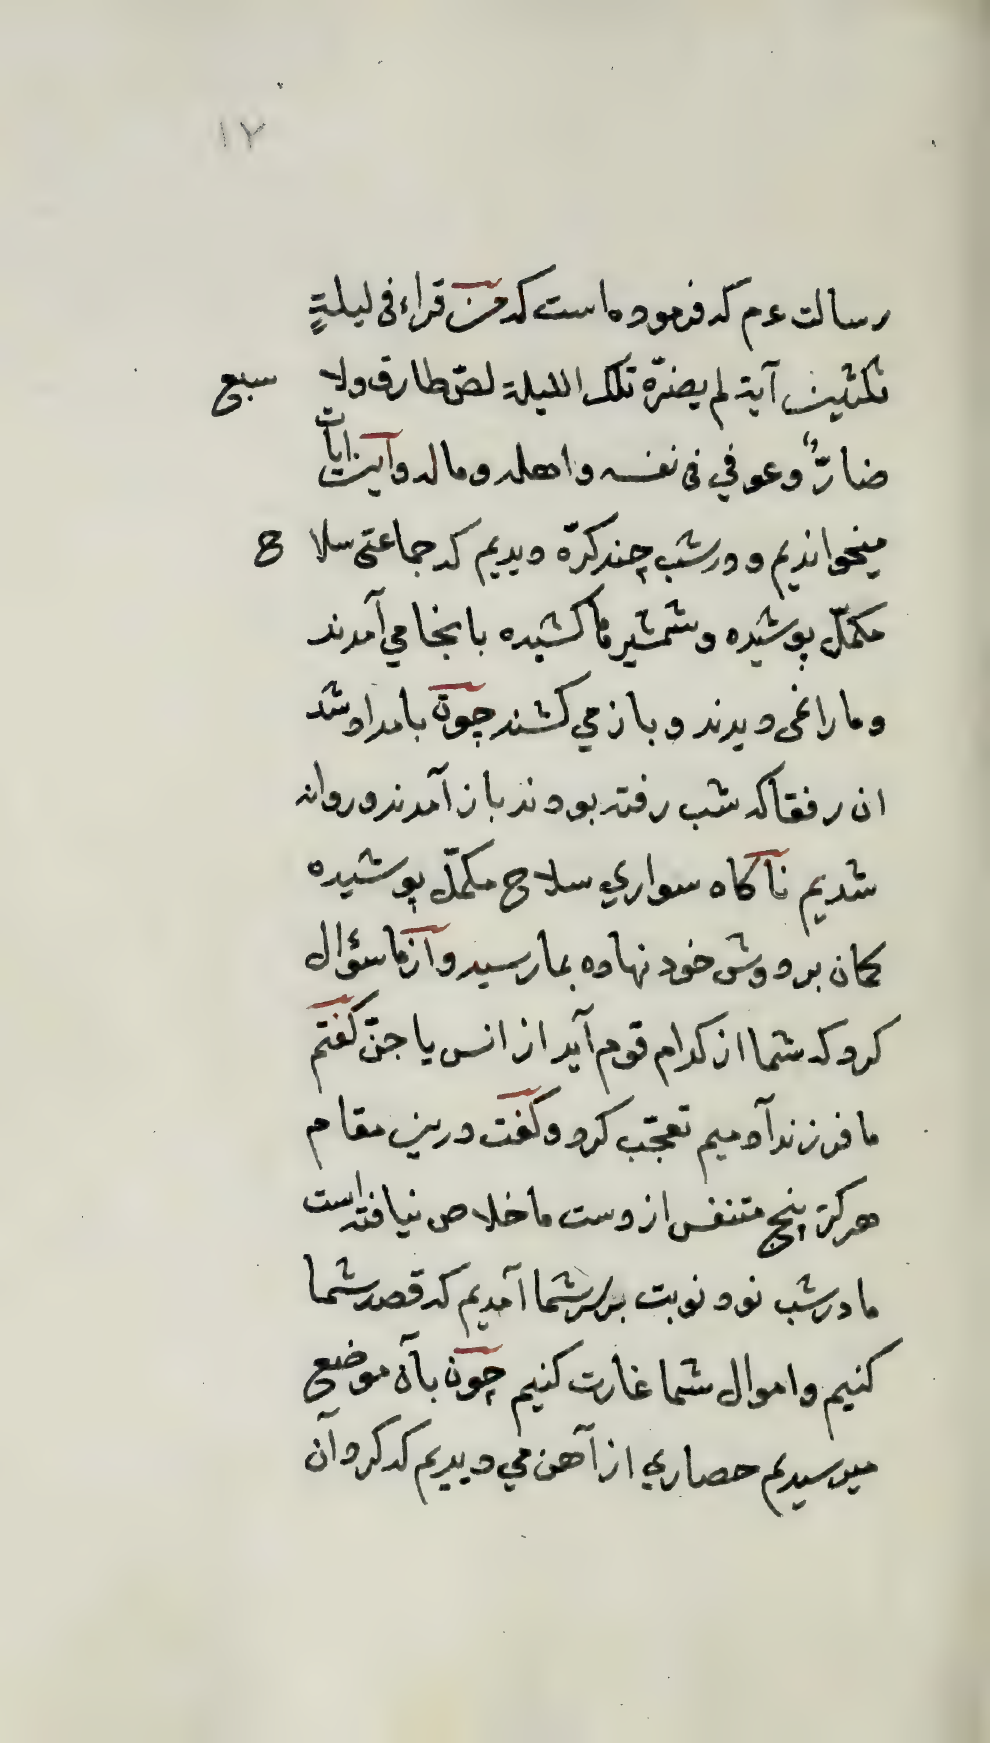 ١٢
رسالت عم که فرموده است که من قراء فی لیلةٍ
ثلثین آیة لم یضرّه تلک اللیلة لصّ طارق ولا سبع
ضارٌّ وعوفي فی نفسه واهله وماله وآیت ایات
میخواندیم و در شب چند کرّه دیدیم که جماعتی سلاح
مکمّل پوشیده و شمشیرها کشیده بانجا می آمدند
و ما را نمی دیدند و باز می کشتند چون بامداد شد
ان رفقا که شب رفته بودند باز آمدند و روانه
شدیم ناکاه سواری سلاح مکمّل پوشیده
کمان بر دوش خود نهاده بما رسید و از ما سؤال
کرد که شما از کدام قوم آید از انس یا جنّ کفتم
ما فرزند آدمیم تعجّب کرد و کفت درین مقام
هرکز پنج متنفس از دست ما خلاص نیافته است
ما در شب نود نوبت بر سر شما آمدیم که قصد شما
کنیم و اموال شما غارت کنیم چون بآن موضع
میرسیدیم حصاری از آهن می دیدیم که کرد آن